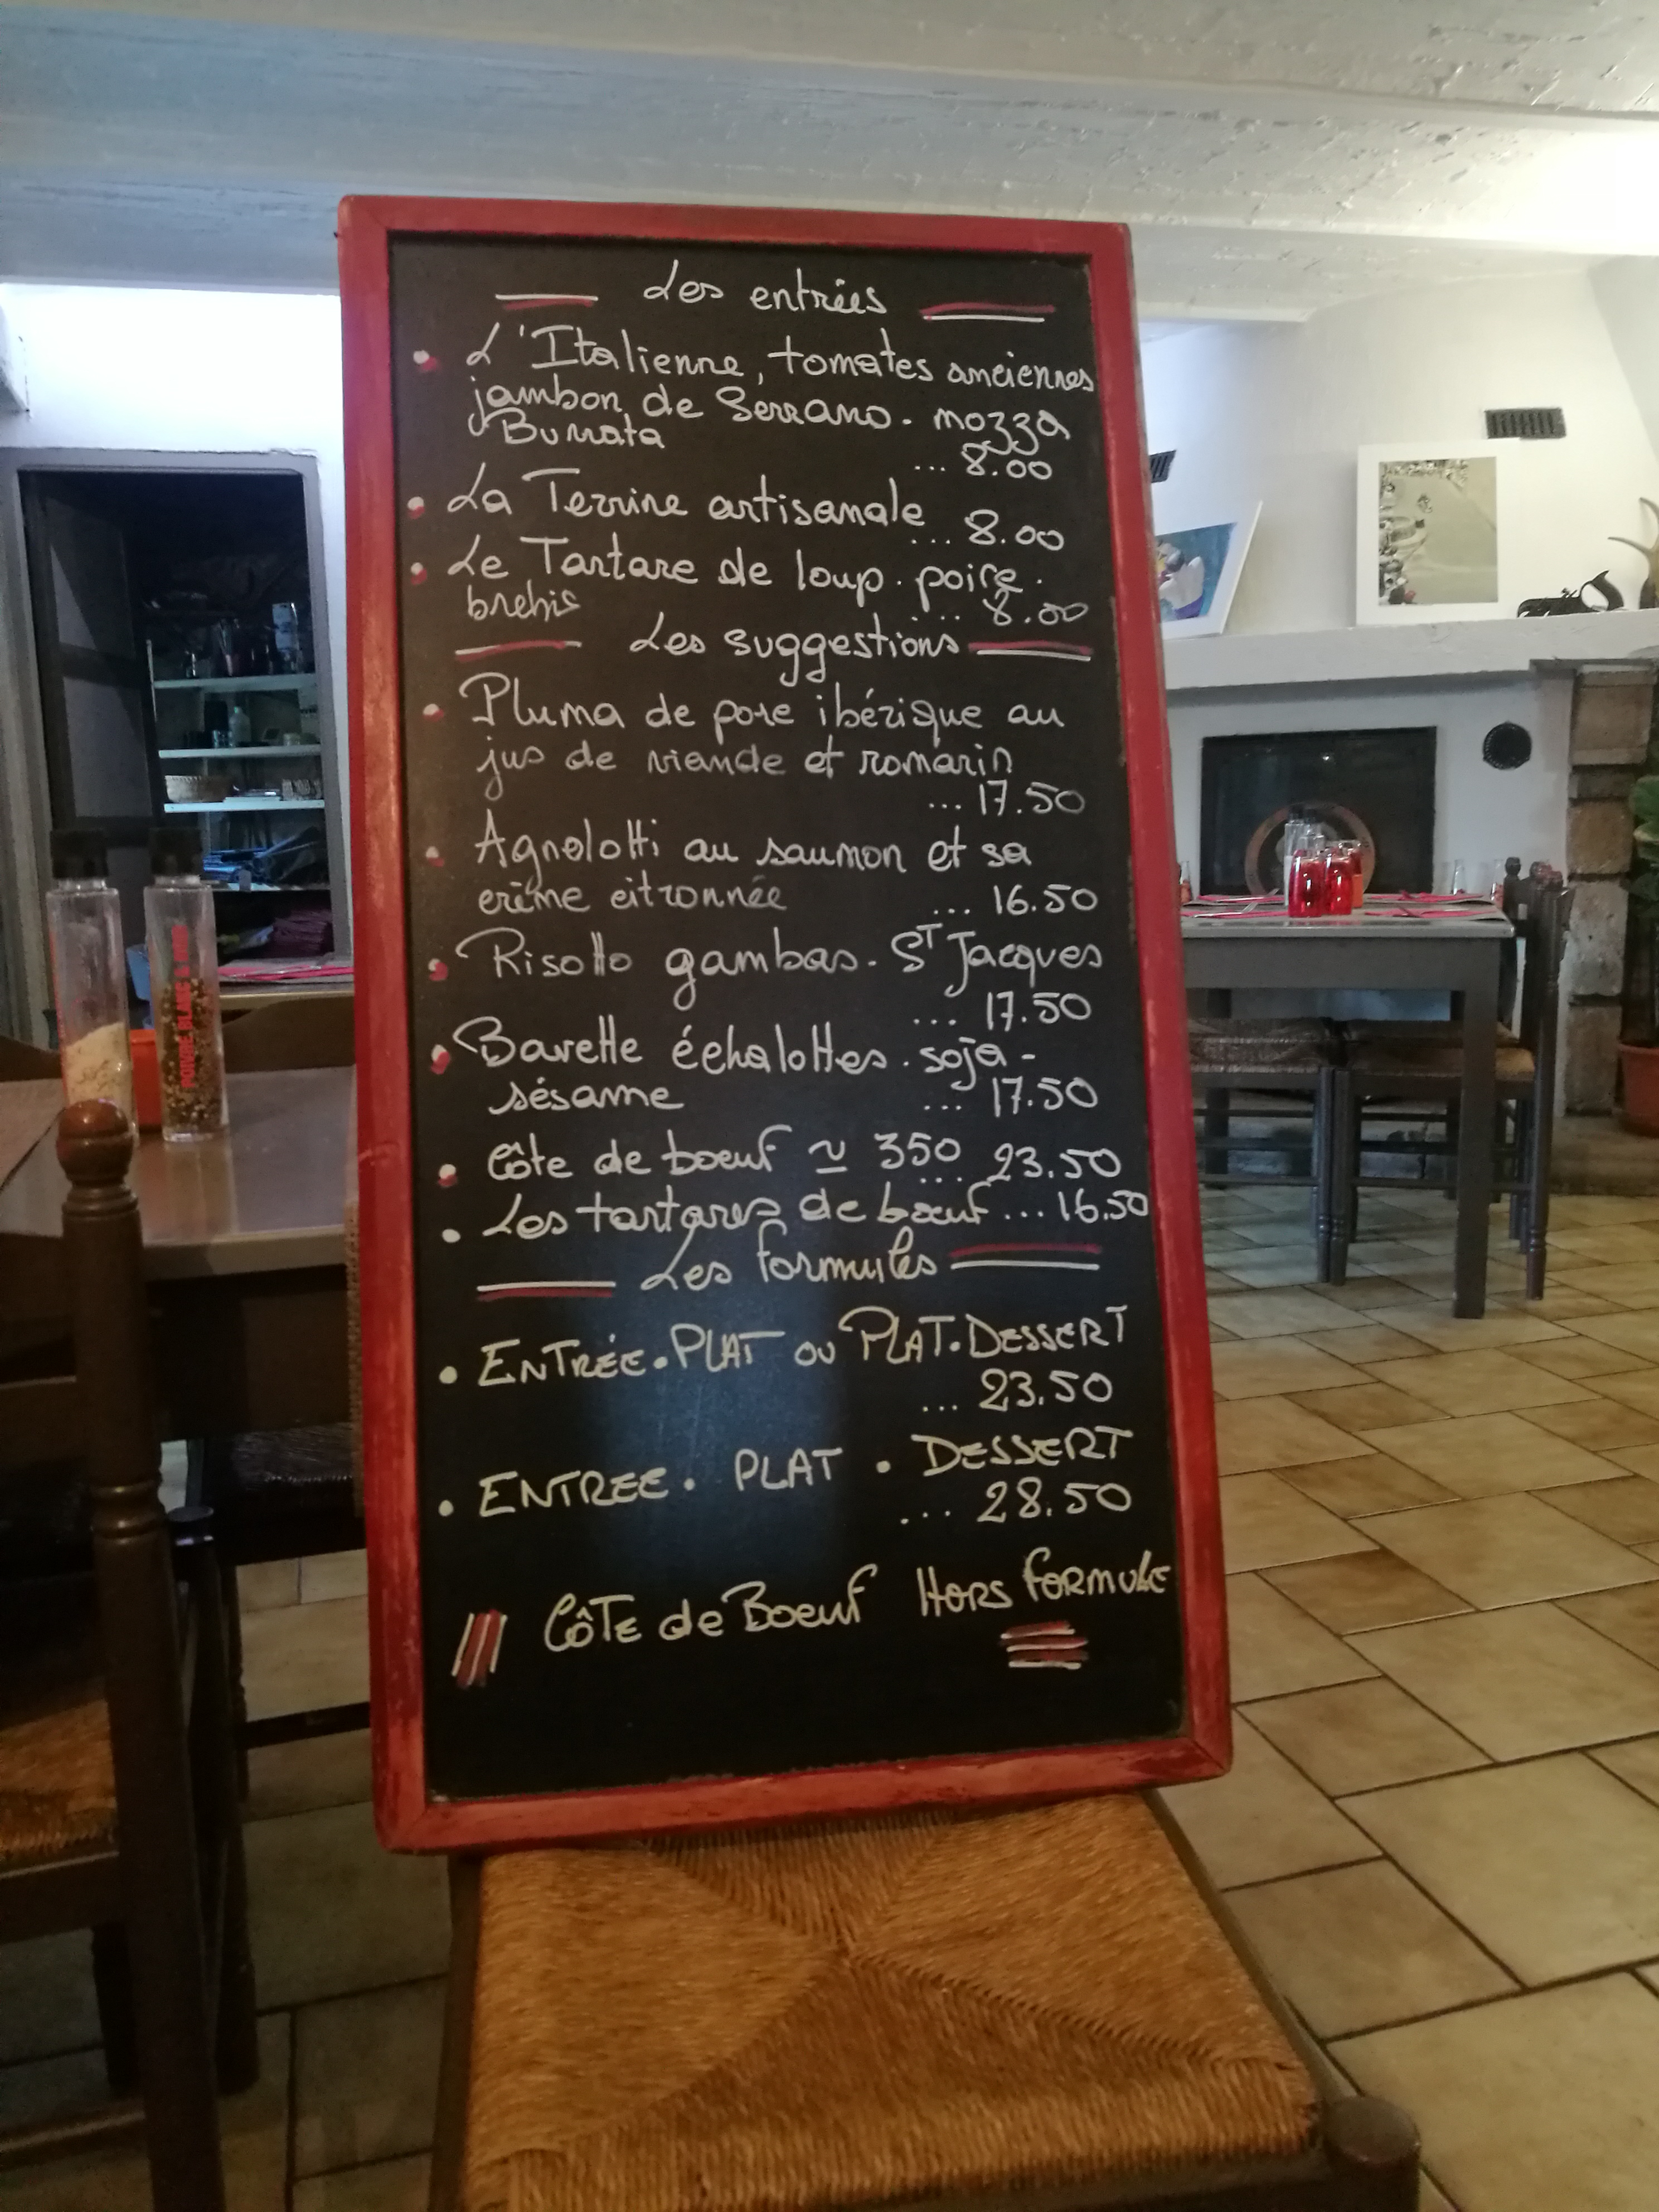 Les entrées
• L'Italienne, tomates anciennes
jambon de Serrano. mozza
Burrata
... 8.00
• La Terrine artisanale
... 8.00
• Le Tartare de loup. poire.
brebis ... 8.00
Les suggestions
• Pluma de porc ibérique au
jus de viande et romarin
... 17.50
• Agnolotti au saumon et sa
crème citronnée ... 16.50
• Risotto gambas. ST Jacques
... 17.50
• Bavette échalottes. soja-
sésame ... 17.50
• Côte de boeuf ≃ 350 ... 23.50
• Les tartares de boeuf ... 16.50
Les formules
• ENTRÉE. PLAT OU PLAT. DESSERT
... 23.50
• ENTREE. PLAT. DESSERT
... 28.50
CÔTE de Boeuf HORS FORMULE
POIVRE BLANC & NOIR